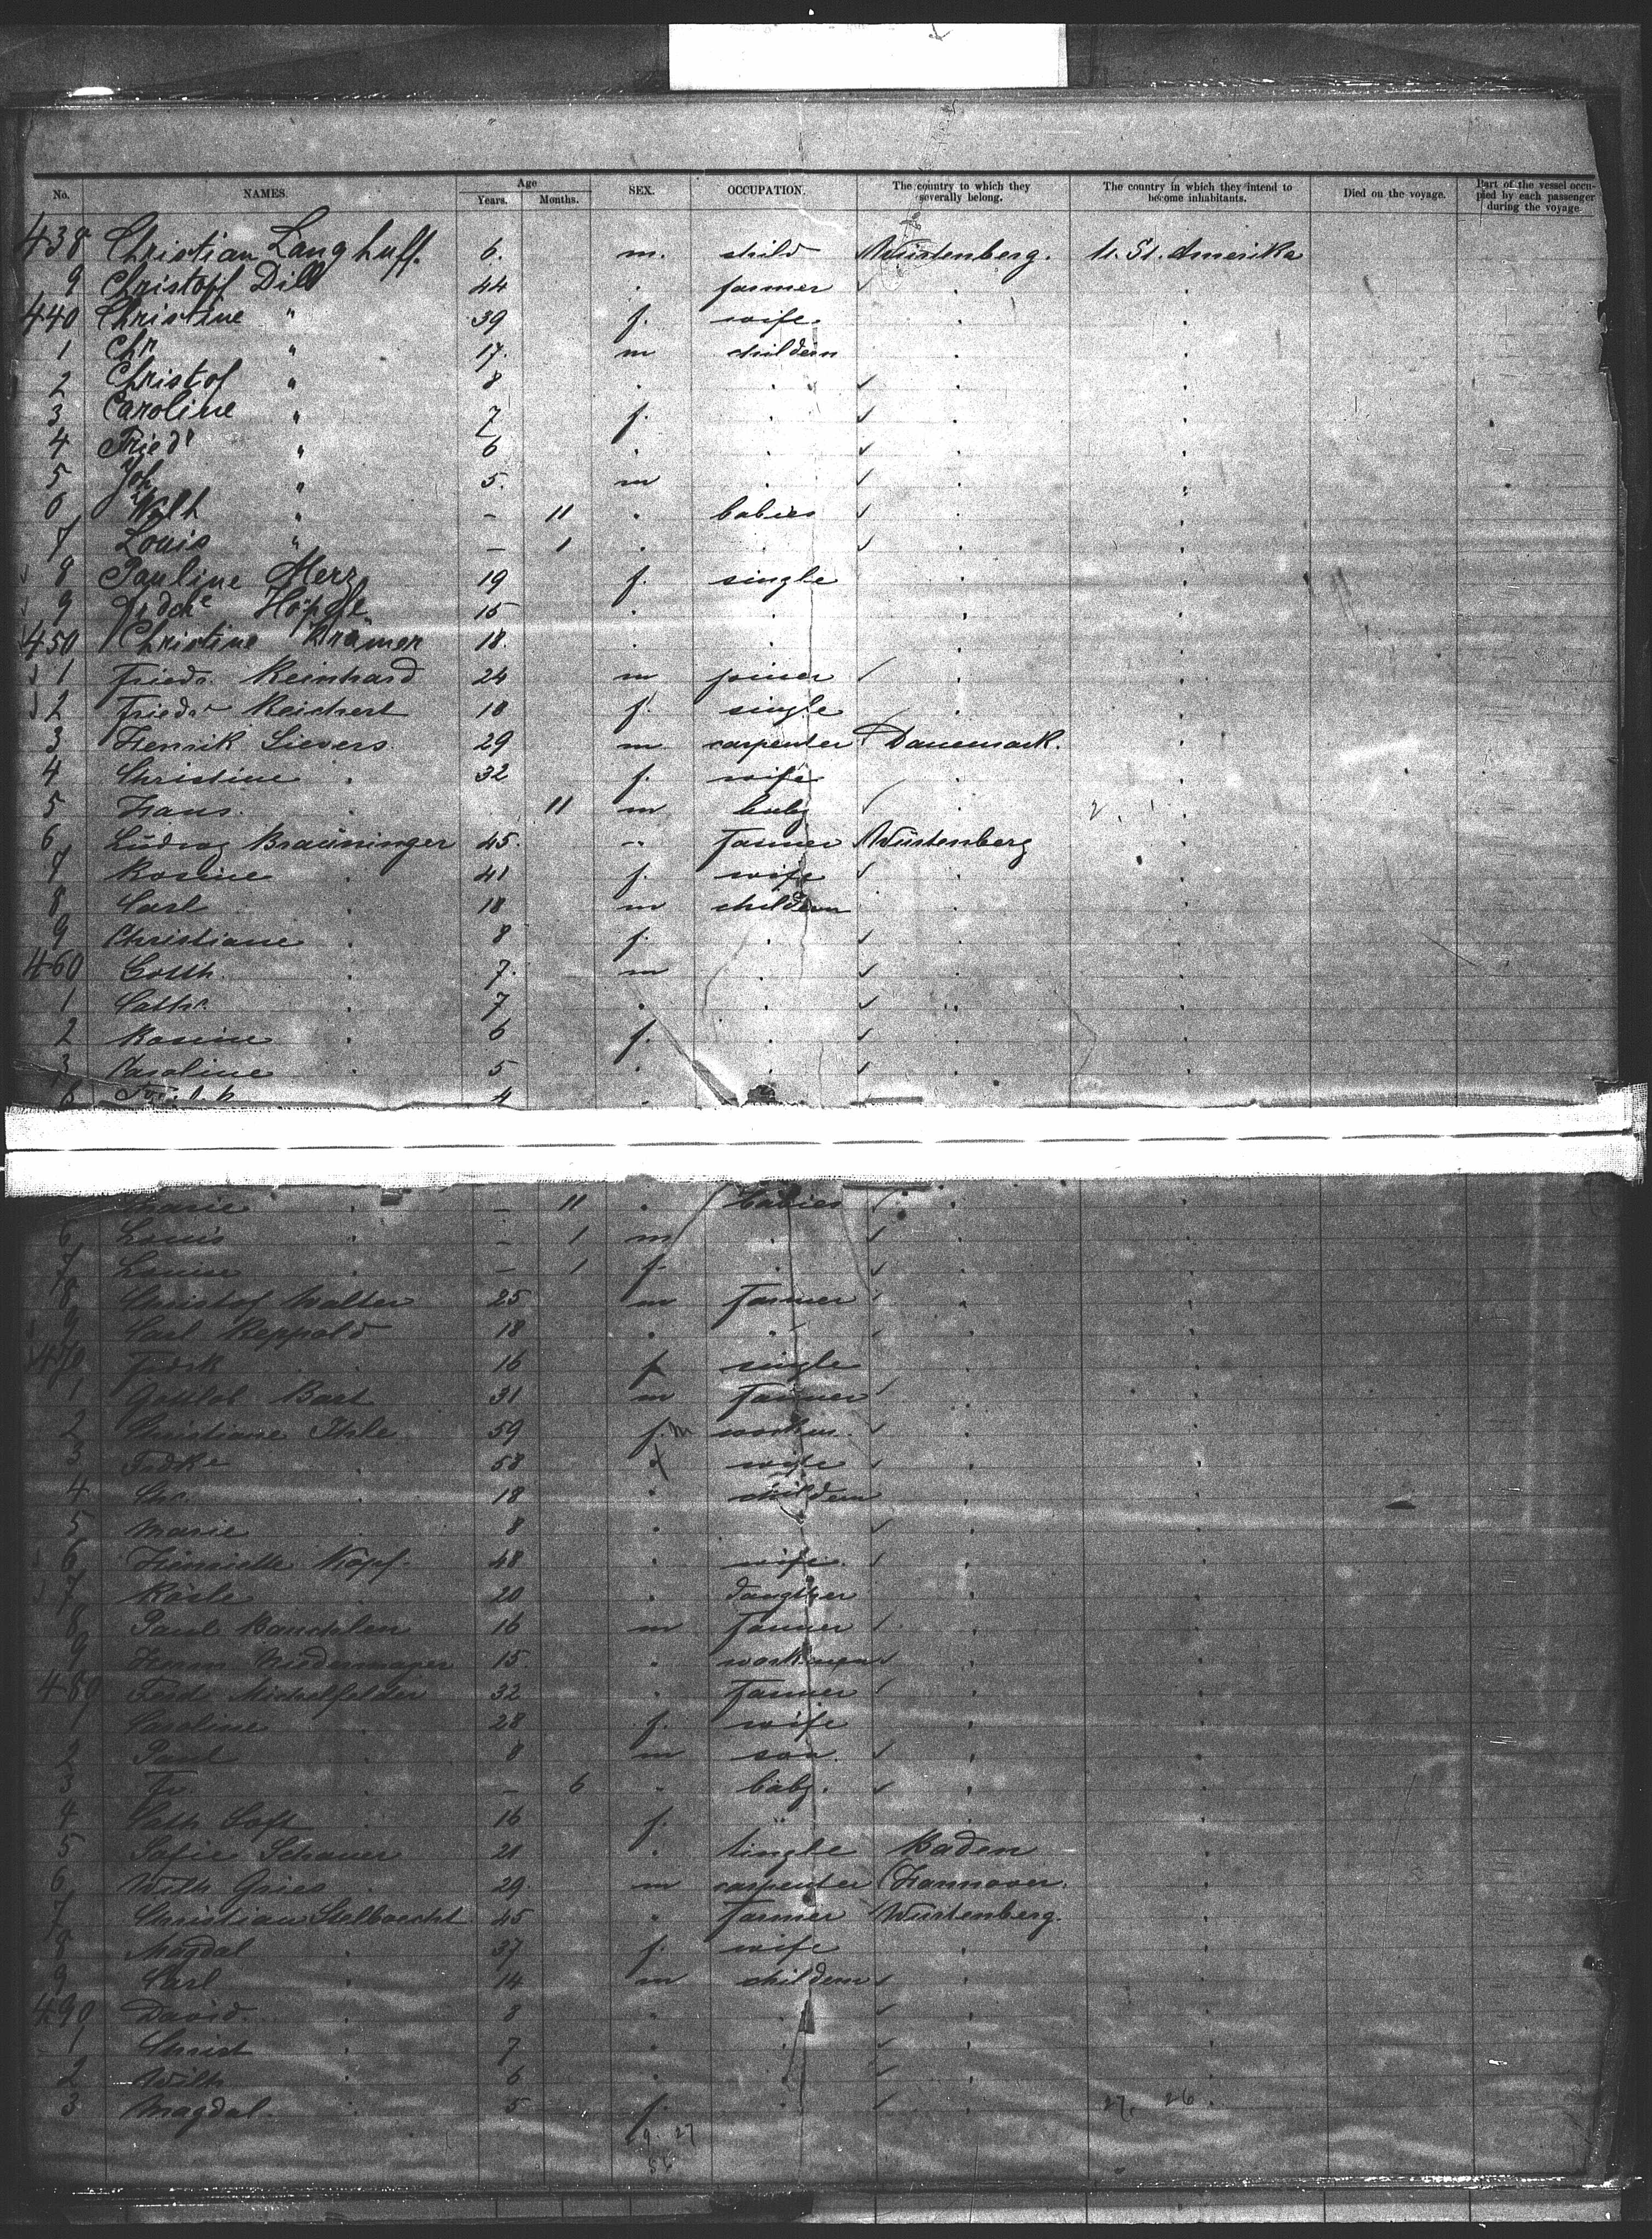 No. NAMES. Age Years. Months. SEX. OCCUPATION. The country to which they severally belong. The country in which they intend to become inhabitants. Died on the voyage. Part of the vessel occupied by each passenger during the voyage
438 Christian Langhuff. 6. m. child Würtenberg. U. St. Amerika
9 Christoff Dill 44 " farmer
440 Christine " 39 f. wife
1 Chr. " 17. m childern
2 Christof " 8
3 Caroline " 7 f.
4 Friedr " 6
5 Joh " 5. m
6 Wilh " - 11 " babies
7 Louis " - 1
8 Pauline Merz 19 f. single
9 15
450 Christine Krämer 18.
1 Friedr. Reinhard 24 m joiner
2 Friedr Reichert 18 f. single
3 Henrik Sievers. 29 m carpenter Danemark.
4 Christine " 32 f. wife
5 Hans. 11 m baby
6 Ludwig Braüninger 45. " Farmer Würtenberg
7 Rosine 41 f. wife
8 Carl 18 m childern
9 Christiane 8 f.
460 Gotth. 7. m
1 Cathr. 7
2 Rosine 6 f.
3 Caroline 5
4
Marie - 11 " babies
6 Louis - 1 m
7 Louise - 1 f.
8 Christof Walter 25 m Farmer
9 Carl Reppold 18
470 Fredk 16 f single
1 Gottlob Bart 31 m Farmer
2 Christiane Ihle 59 f. m workm.
3 Fredke 58 wife
4 Chr. 18 " childern
5 Marie 8 "
6 Henriette Köpf. 48 " wife
7 Rösle 20 " daugther
8 Paul 16 m Farmer
9 Herm Niedermayer 15. " workman
480 Ferd. Michelfelder 32 " Farmer
1 Caroline 28 f. wife
2 Paul 8 m son.
3 Fr. - 6 " baby.
4 Cath 16 f.
5 Sofie Schauer 21 " single Baden
6 Wilh Gries 29. m carpenter Hannover.
7 Christian 45 " Farmer Würtenberg.
8 Magdal 37 f. wife
9 Carl 14 m childern
490 David. 8 "
1 Christ 7 "
2 Wilh 6
3 Magdal. 5 f. 27. 26.
9. 27
56